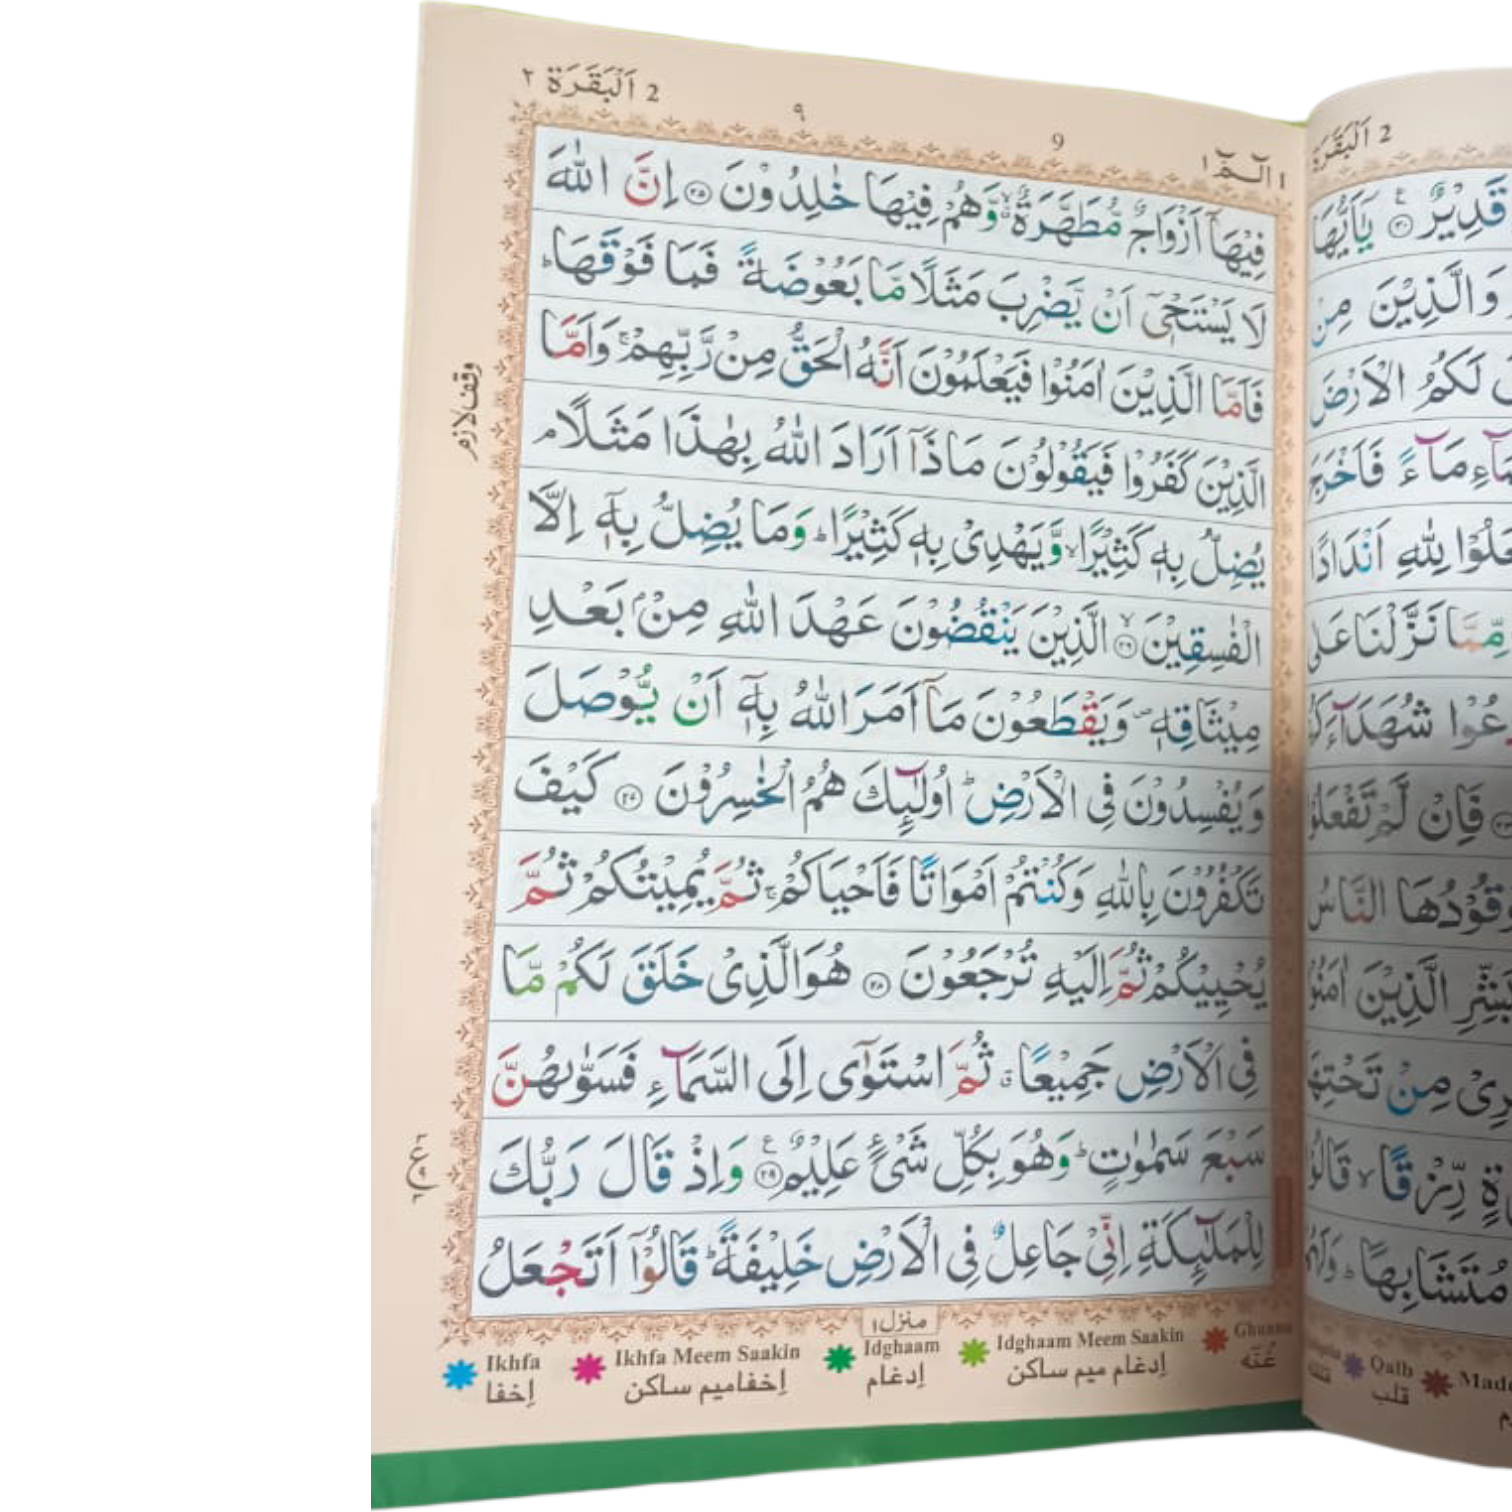 ٢ اَلْبَقَرَة 2
٩
9
الٓمّٓ ١
فِيْهَاۤ اَزْوَاجٌ مُّطَهَّرَةٌ ۙۗ وَّهُمْ فِيْهَا خٰلِدُوْنَ ۝۲۵ اِنَّ اللّٰهَ
لَا يَسْتَحْيٖۤ اَنْ يَّضْرِبَ مَثَلًا مَّا بَعُوْضَةً فَمَا فَوْقَهَا ؕ
فَاَمَّا الَّذِيْنَ اٰمَنُوْا فَيَعْلَمُوْنَ اَنَّهُ الْحَقُّ مِنْ رَّبِّهِمْ ۚ وَاَمَّا
الَّذِيْنَ كَفَرُوْا فَيَقُوْلُوْنَ مَاذَاۤ اَرَادَ اللّٰهُ بِهٰذَا مَثَلًا ۘ
يُضِلُّ بِهٖ كَثِيْرًا ۙ وَّيَهْدِىْ بِهٖ كَثِيْرًا ؕ وَمَا يُضِلُّ بِهٖۤ اِلَّا
الْفٰسِقِيْنَ ۝۲۶ ۙ الَّذِيْنَ يَنْقُضُوْنَ عَهْدَ اللّٰهِ مِنْۢ بَعْدِ
مِيْثَاقِهٖ ۪ وَيَقْطَعُوْنَ مَاۤ اَمَرَ اللّٰهُ بِهٖۤ اَنْ يُّوْصَلَ
وَيُفْسِدُوْنَ فِى الْاَرْضِ ؕ اُولٰٓئِكَ هُمُ الْخٰسِرُوْنَ ۝۲۷ كَيْفَ
تَكْفُرُوْنَ بِاللّٰهِ وَكُنْتُمْ اَمْوَاتًا فَاَحْيَاكُمْ ۚ ثُمَّ يُمِيْتُكُمْ ثُمَّ
يُحْيِيْكُمْ ثُمَّ اِلَيْهِ تُرْجَعُوْنَ ۝۲۸ هُوَ الَّذِىْ خَلَقَ لَكُمْ مَّا
فِى الْاَرْضِ جَمِيْعًا ۗ ثُمَّ اسْتَوٰۤى اِلَى السَّمَآءِ فَسَوّٰىهُنَّ
سَبْعَ سَمٰوٰتٍ ؕ وَهُوَ بِكُلِّ شَىْءٍ عَلِيْمٌ ۝۲۹ ع وَاِذْ قَالَ رَبُّكَ
لِلْمَلٰٓئِكَةِ اِنِّىْ جَاعِلٌ فِى الْاَرْضِ خَلِيْفَةً ؕ قَالُوْۤا اَتَجْعَلُ
وقف لازم
ع
منزل ١
Ikhfa
اِخفا
Ikhfa Meem Saakin
اِخفا میم ساکن
Idghaam
اِدغام
Idghaam Meem Saakin
اِدغام میم ساکن
Ghunna
غُنّه
اَلْبَقَرَة 2
قَدِيْرٌ ۝۲۰ ع يٰٓاَيُّهَا
وَالَّذِيْنَ مِنْ
لَكُمُ الْاَرْضَ
مَآءً فَاَخْرَجَ
لِلّٰهِ اَنْدَادًا
مِّمَّا نَزَّلْنَا عَلٰى
شُهَدَآءَكُمْ
فَاِنْ لَّمْ تَفْعَلُوْا
وَقُوْدُهَا النَّاسُ
الَّذِيْنَ اٰمَنُوْا
مِنْ تَحْتِهَا
رِّزْقًا ۙ قَالُوْا
مُتَشَابِهًا ؕ وَلَهُمْ
Qalb
قلب